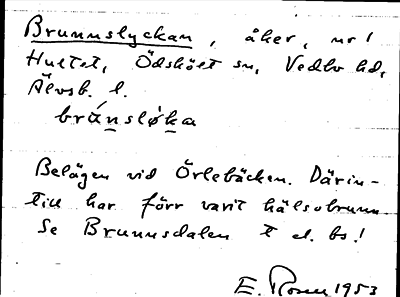 Brunnslyckan, åker, nr 1
Hultet, Ödskölt sn, Vedbo hd,
Älvsb. l.
brúnsløka
Belägen vid Örlebäcken. Därin-
till har förr varit hälsobrunn
Se Brunnsdalen t el. bs!
E. Rosen 1953